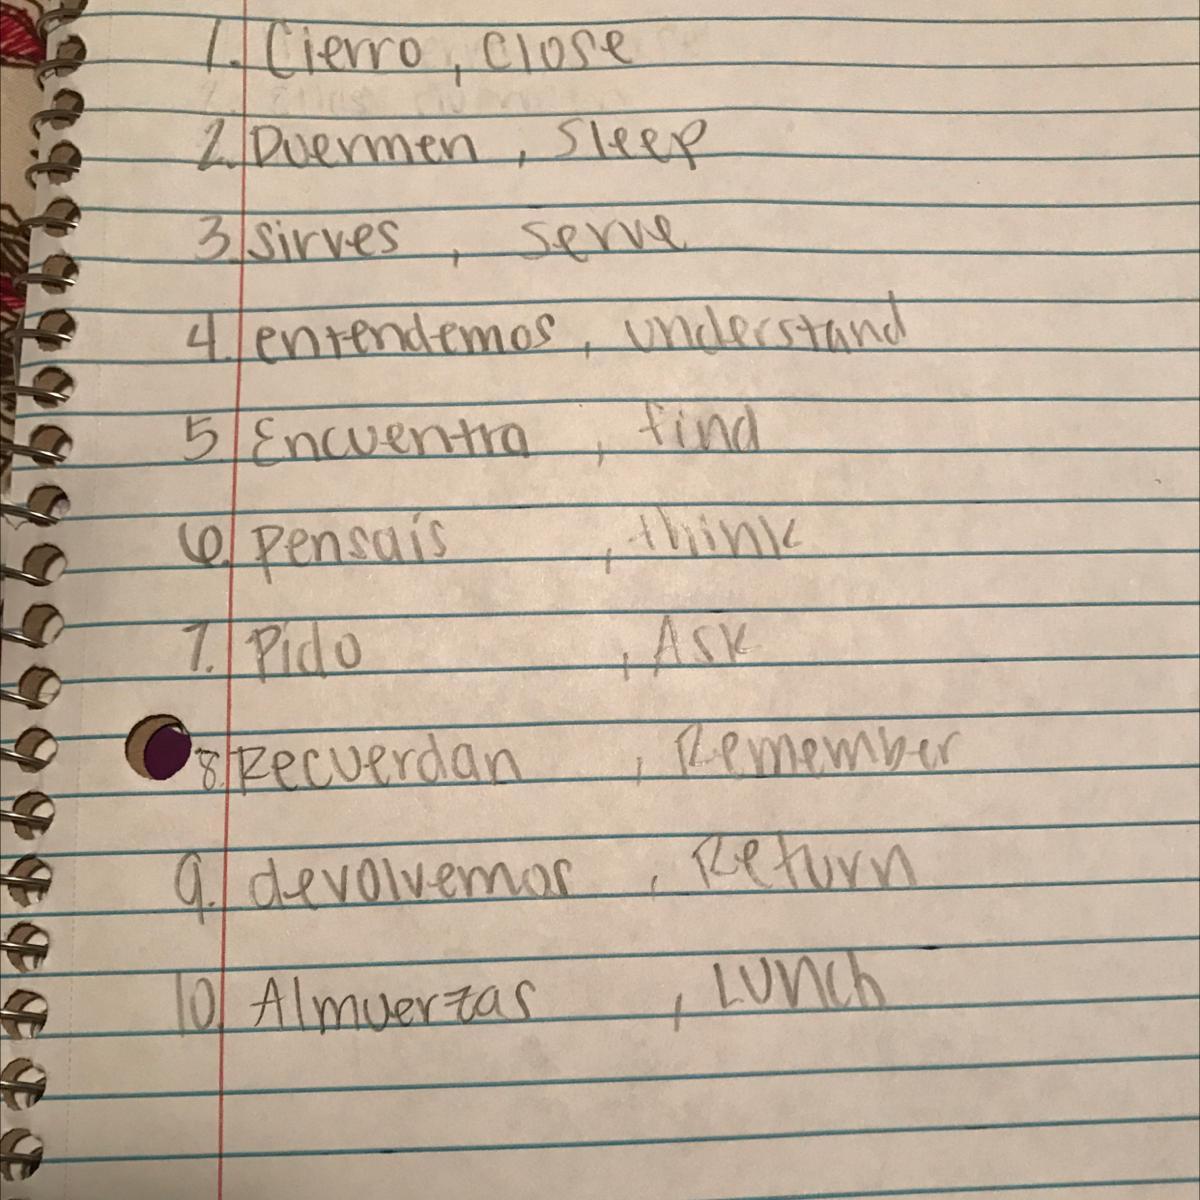 1. Cierro, close
2. Duermen, sleep
3. sirves, serve
4. entendemos, understand
5 Encuentra, find
6. pensaís, think
7. Pido, Ask
8. Recuerdan, Remember
9. devolvemos, Return
10 Almuerzas, Lunch